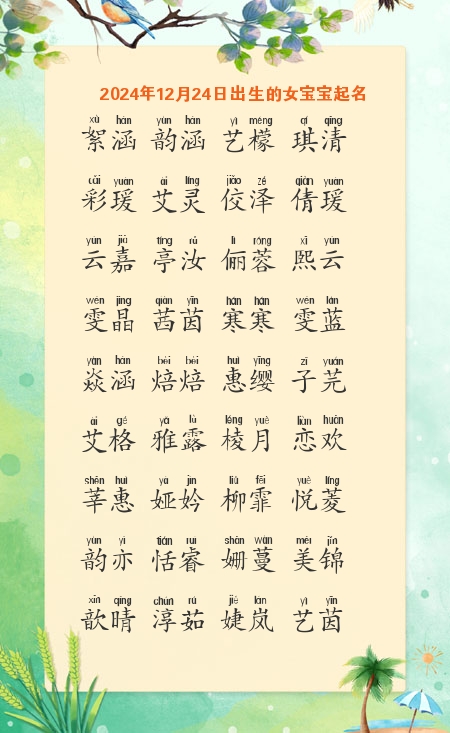 2024年12月24日出生的女宝宝起名
xù hán yùn hán yì méng qí qīng
絮涵 韵涵 艺檬 琪清
cǎi yuàn ài líng jiǎo zé qiàn yuàn
彩瑗 艾灵 佼泽 倩瑗
yún jiā tíng rǔ lì róng xī yún
云嘉 亭汝 俪蓉 熙云
wén jīng qiàn yīn hán hán wén lán
雯晶 茜茵 寒寒 雯蓝
yàn hán bèi bèi huì yīng zǐ yuán
焱涵 焙焙 惠缨 子芫
ài gé yǎ lù léng yuè liàn huān
艾格 雅露 棱月 恋欢
shēn huì yà jìn liǔ fēi yuè líng
莘惠 娅妗 柳霏 悦菱
yùn yì tián ruì shān wàn měi jǐn
韵亦 恬睿 姗蔓 美锦
xīn qíng chún rú jié lán yì yīn
歆晴 淳茹 婕岚 艺茵